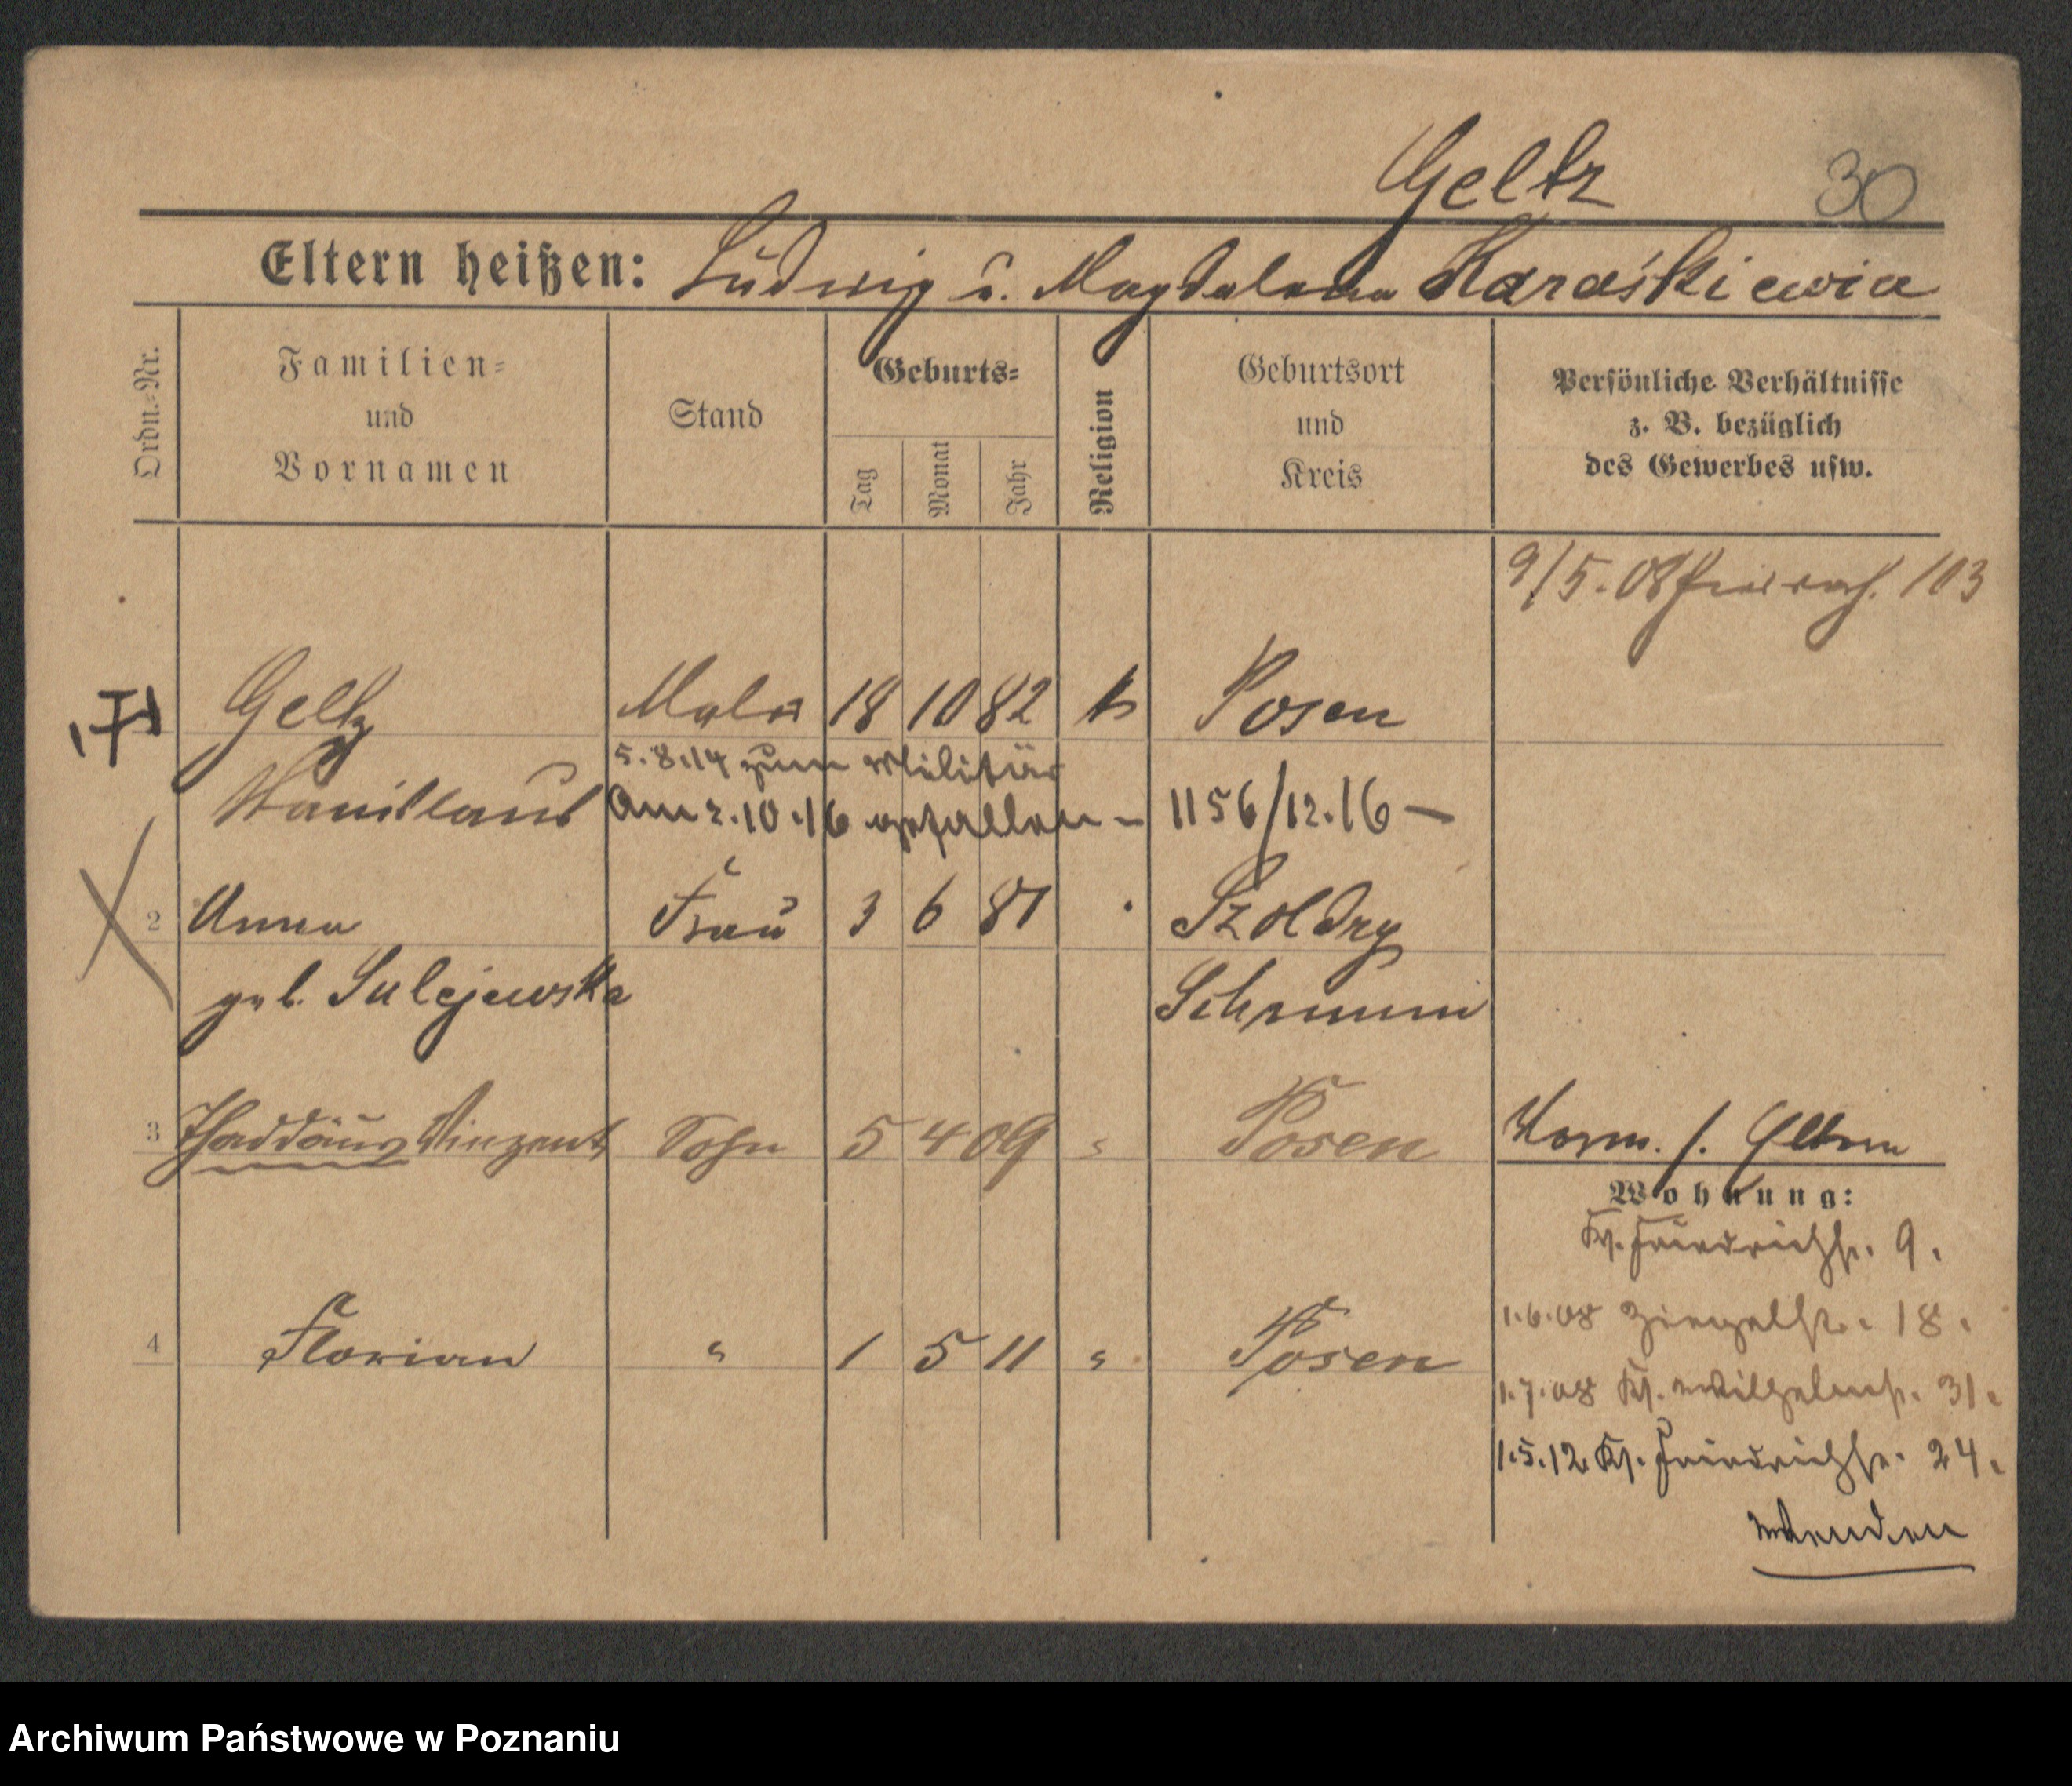 Geltz 30
Eltern heißen: Ludwig u. Magdalena Karaśkiewicz
Ordn.-Nr.
Familien-
und
Vornamen
Stand
Geburts-
Tag
Monat
Jahr
Religion
Geburtsort
und
Kreis
Persönliche Verhältnisse
z. B. bezüglich
des Gewerbes usw.
9/5.08 103
Geltz Maler 18 10 82 k Posen
5.8.14 zum Militär
Stanislaus am 2.10.16 gefallen - 1156/12.16 -
2 Anna Frau 3 6 87 Szoldry
geb. Sulejewska Schrimm
3 Thaddäus Vinzent Sohn 5 4 09 " Posen Vorm. s. Eltern
Wohnung:
Kl. Friedrichstr. 9.
1.6.08 Ziegelstr. 18.
4 Florian " 1 5 11 " Posen
1.7.08 Kl. Wilhelmstr. 31.
1.5.12 Kl. Friedrichstr. 24.
Wenden
Archiwum Państwowe w Poznaniu